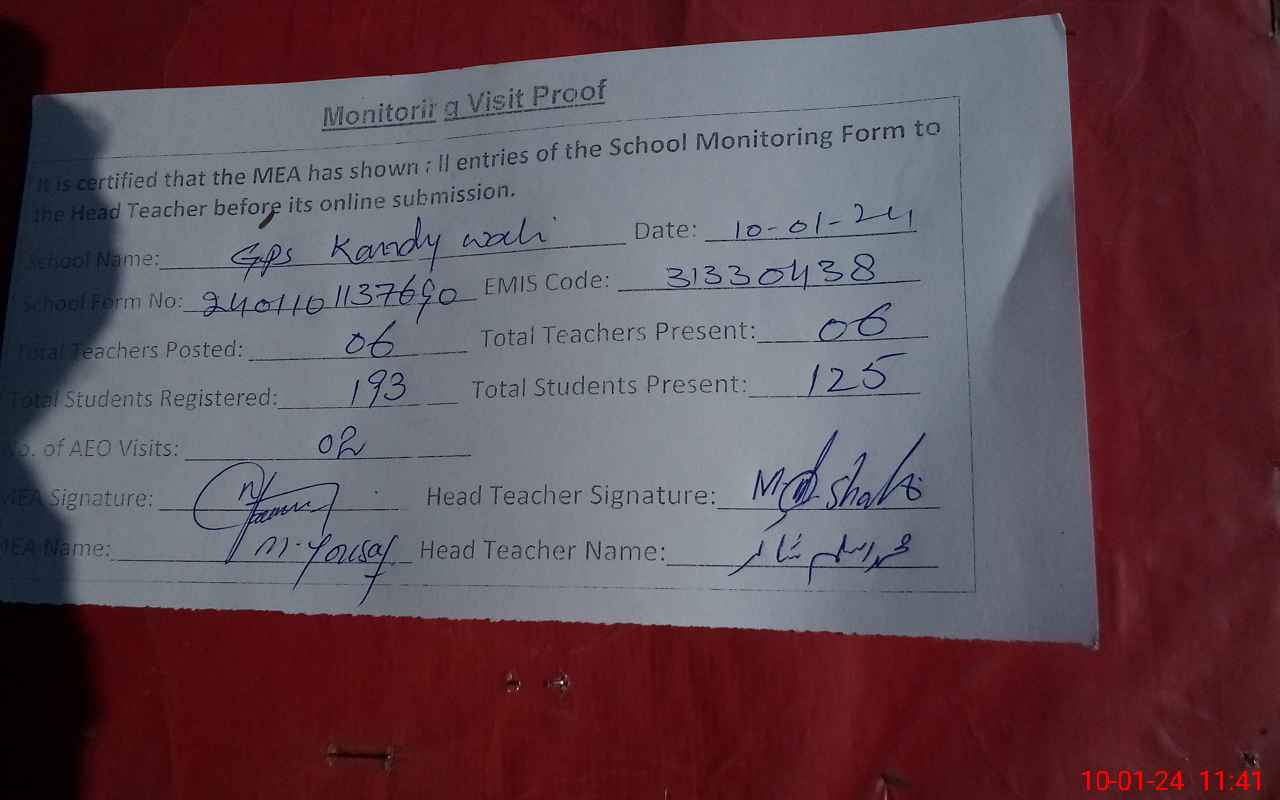 Monitoring Visit Proof
It is certified that the MEA has shown all entries of the School Monitoring Form to
the Head Teacher before its online submission.
School Name: GPS Kandy wali Date: 10-01-24
School Form No: 2401101137690 EMIS Code: 31330438
Total Teachers Posted: 06 Total Teachers Present: 06
Total Students Registered: 193 Total Students Present: 125
No. of AEO Visits: 02
MEA Signature: Head Teacher Signature:
MEA Name: M. Yousaf Head Teacher Name: محمد اسلم شاکر
10-01-24 11:41